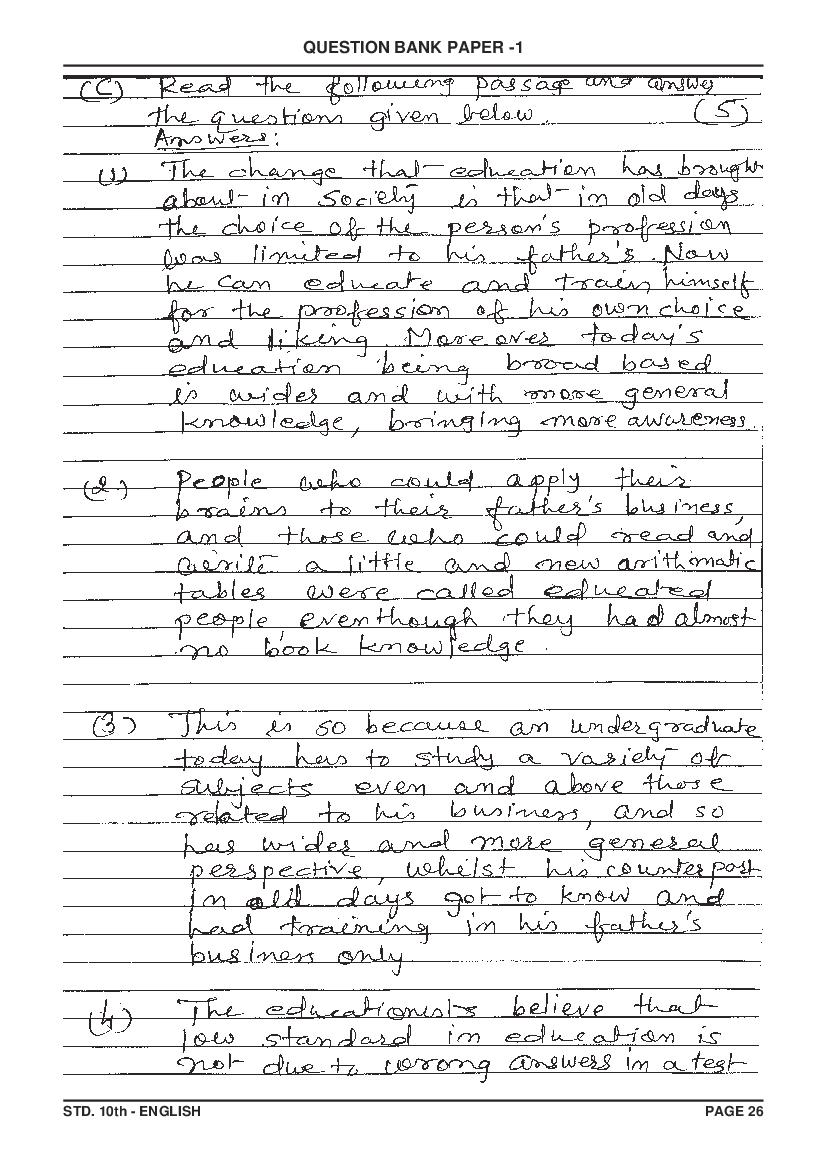 QUESTION BANK PAPER -1
(C) Read the following passage and answer
the questions given below. (5)
Answers:
(1) The change that education has brought
about in society is that in old days
the choice of the person's profession
was limited to his father's. Now
he can educate and train himself
for the profession of his own choice
and liking. Moreover today's
education being broad based
is wider and with more general
knowledge, bringing more awareness.
(2) People who could apply their
brains to their father's business,
and those who could read and
write a little and new arithmatic
tables were called educated
people eventhough they had almost
no book knowledge.
(3) This is so because an undergraduate
today has to study a variety of
subjects even and above those
related to his business, and so
has wider and more general
perspective, whilst his counterpart
in old days got to know and
had training in his father's
business only
(4) The educationists believe that
low standard in education is
not due to wrong answers in a test
STD. 10th - ENGLISH PAGE 26